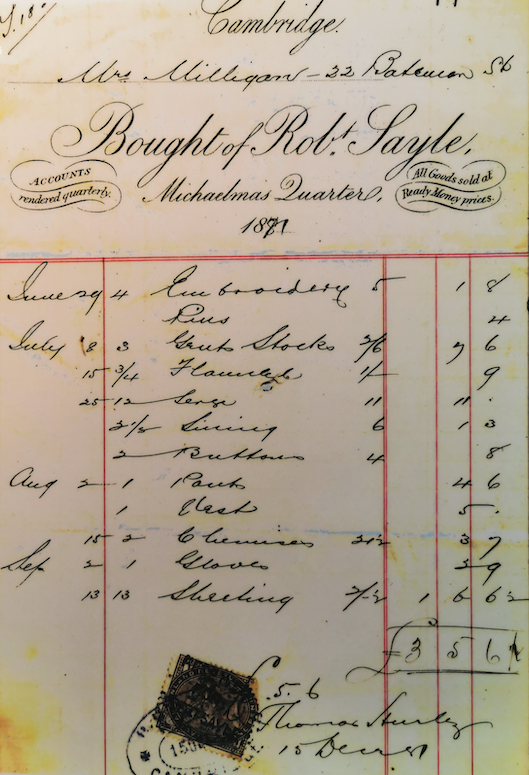 Cambridge.
Mrs Milligan - 22 Bateman St
Bought of Robt. Sayle,
ACCOUNTS
rendered quarterly.
All Goods sold at
Ready Money prices.
Michaelmas Quarter,
1871
June 29 4 Embroidery 5 1 8
Pins 4
July 8 3 Gents Stocks 2/6 7 6
15 3/4 Flannel 1/- 9
25 12 Serge 11 11 .
2 1/2 Lining 6 1 3
2 Buttons 4 8
Aug 2 1 Pants 4 6
1 Vest 5 .
15 2 Chemises 21½ 3 7
Sep 2 1 Gloves 2 9
13 13 Sheeting 1 6 6½
£3 5 6
5. 6
Thomas
15